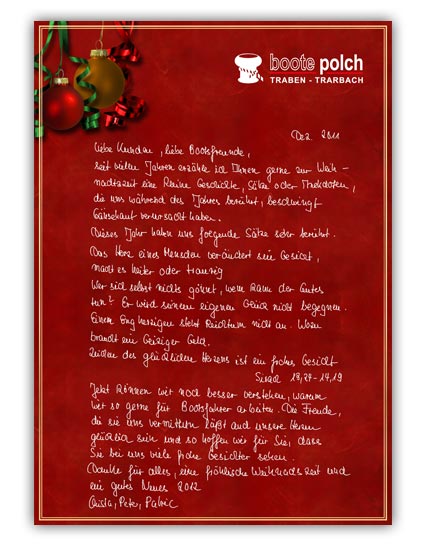 boote polch
TRABEN - TRARBACH
Dez. 2011
Liebe Kunden, liebe Bootsfreunde,
seit vielen Jahren erzähle ich Ihnen gerne zur Weih-
nachtszeit eine kleine Geschichte, Sätze oder Anekdoten,
die uns während des Jahres berührt, beschwingt
Gänsehaut verursacht haben.
Dieses Jahr haben uns folgende Sätze sehr berührt.
Das Herz eines Menschen verändert sein Gesicht,
macht es heiter oder traurig
Wer sich selbst nichts gönnt, wem kann der Gutes
tun? Er wird seinem eigenen Glück nicht begegnen.
Einem Engherzigen steht Reichtum nicht an. Wozu
braucht ein Geiziger Geld.
Zeichen des glücklichen Herzens ist ein frohes Gesicht
Sirach
Jetzt können wir noch besser verstehen, warum
wir so gerne für Bootsfahrer arbeiten. Die Freude,
die sie uns vermitteln läßt auch unsere Herzen
glücklich sein und so hoffen wir für Sie, dass
Sie bei uns viele frohe Gesichter sehen.
Danke für alles, eine fröhliche Weihnachtszeit und
ein gutes Neues 2012
Peter, Patric